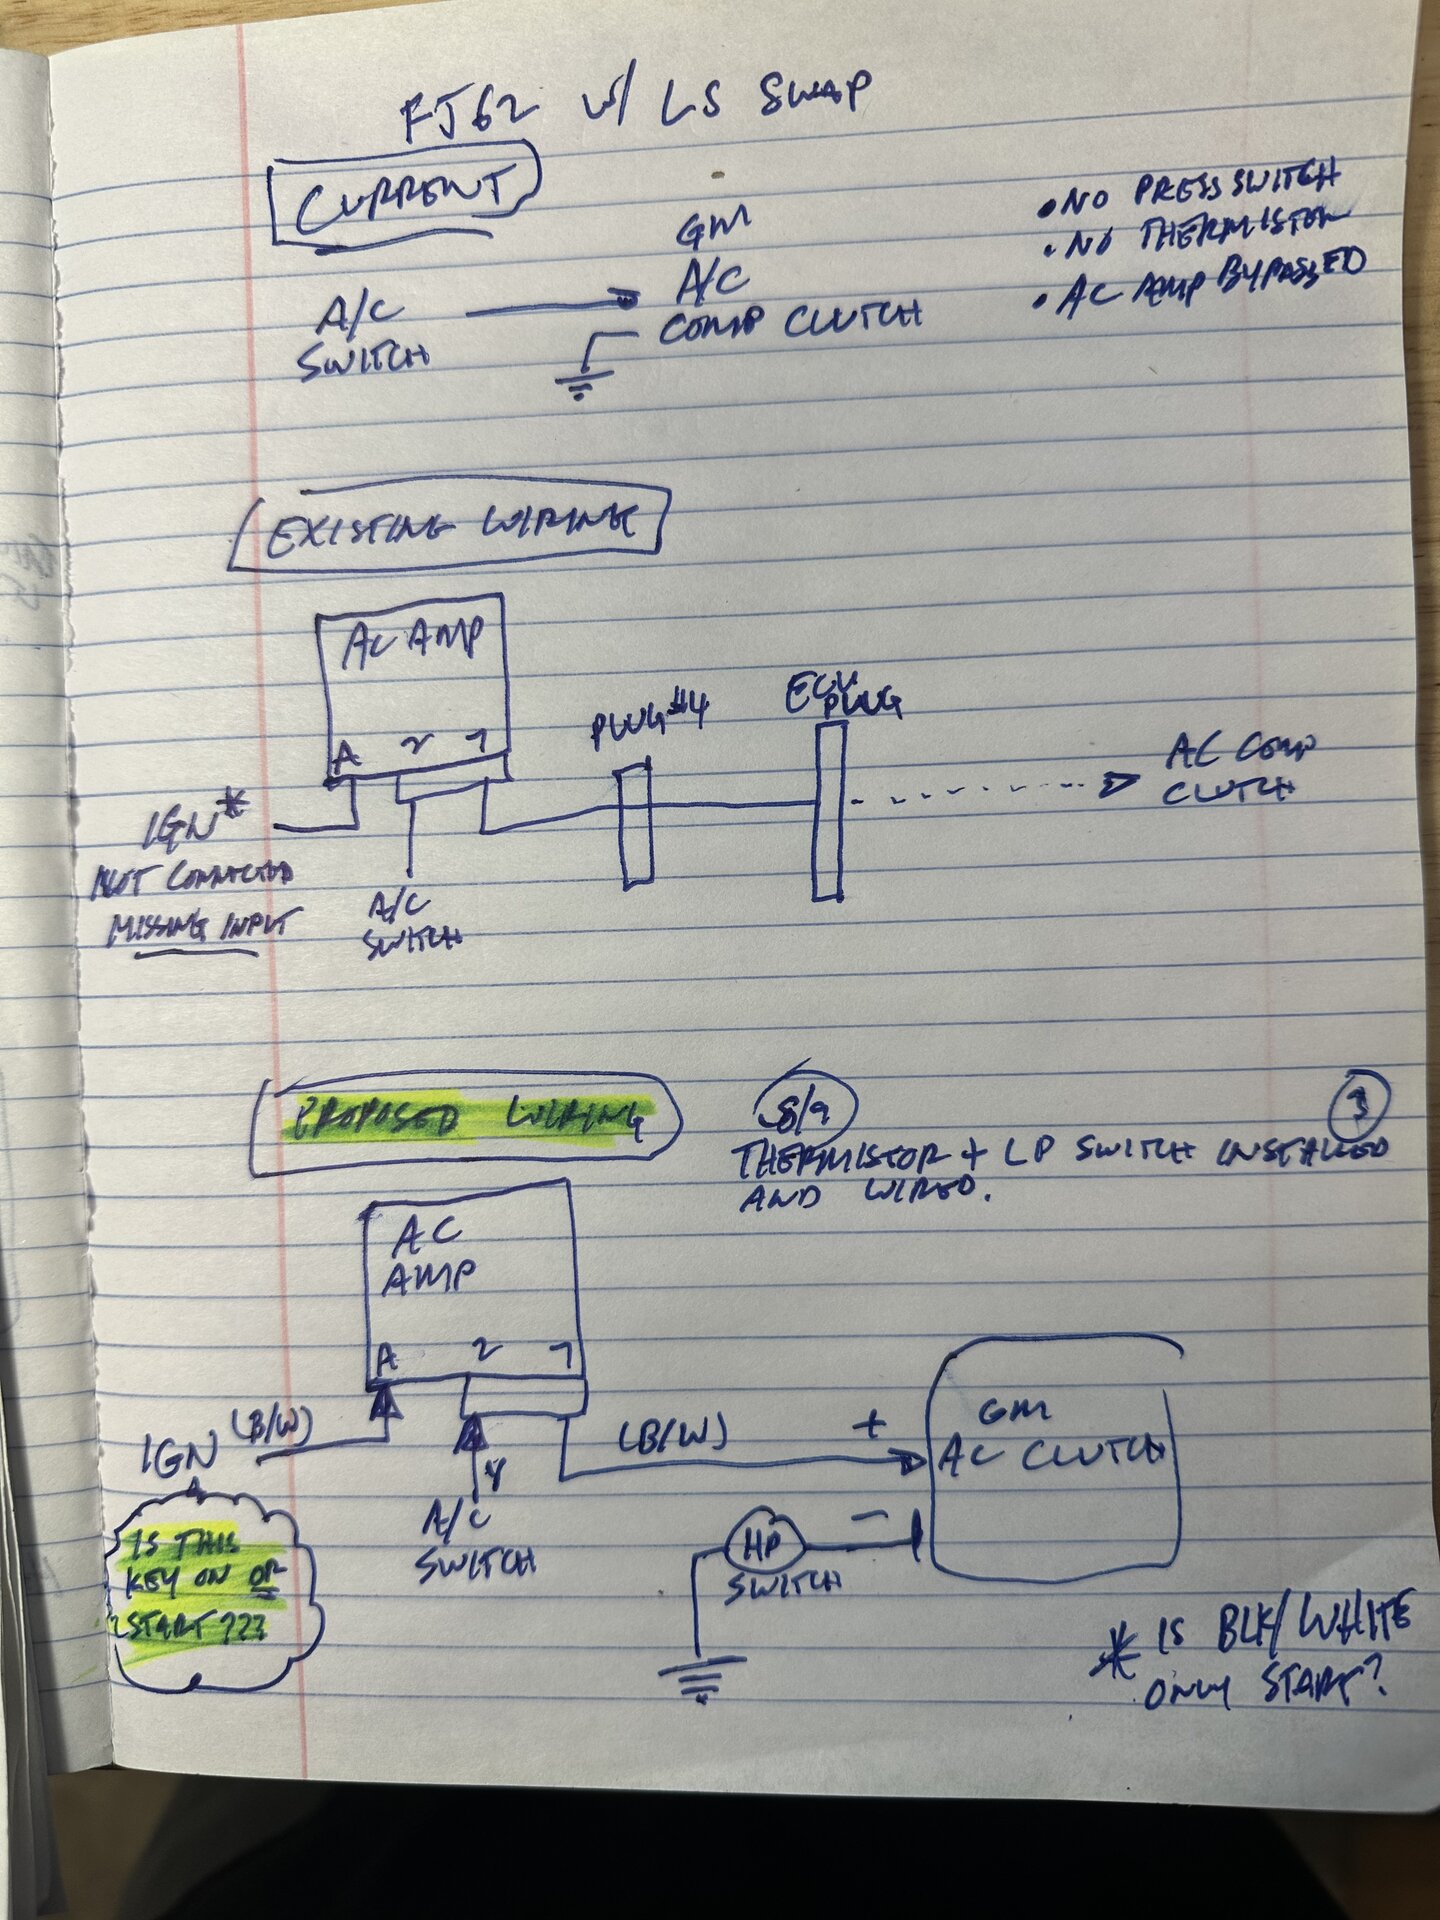 FJ62 W/ LS SWAP
CURRENT
• NO PRESS SWITCH
• NO THERMISTOR
• AC AMP BYPASSED
A/C
SWITCH
GM
A/C
COMP CLUTCH
EXISTING WIRING
AC AMP
A 2 7
PLUG #4
ECU
PLUG
AC COMP
CLUTCH
IGN*
NOT CONNECTED
MISSING INPUT
A/C
SWITCH
PROPOSED WIRING
8/9
3
THERMISTOR + LP SWITCH INSTALLED
AND WIRED.
AC
AMP
A 2 7
IGN (B/W)
(B/W)
+
GM
AC CLUTCH
Y
A/C
SWITCH
HP
SWITCH
–
IS THIS
KEY ON OR
START ???
* IS BLK/WHITE
ONLY START?